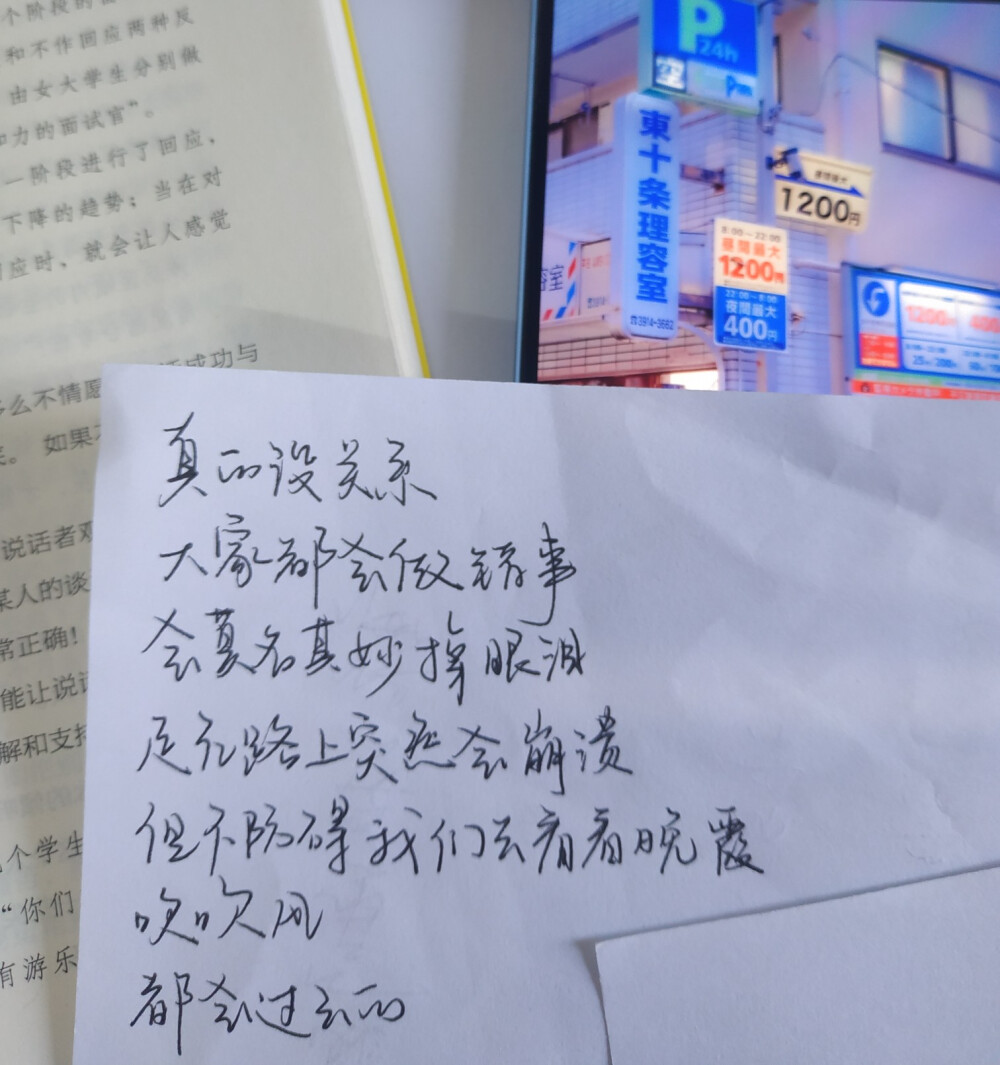 个阶段的
和不作回应两种反
由女大学生分别做
和力的面试官”。
一阶段进行了回应，
下降的趋势；当在对
回应时、就会让人感觉
成功与
么不情愿
。 如果
说话者
某人的谈
常正确！
能让说
解和支持
个学生
“你们
有游乐
P
24h
空
東十条理容室
☎3914-3662
容室
1200円
8:00～22:00
昼間最大
1200円
22:00～8:00
夜間最大
400円
1200
400
真的没关系
大家都会做错事
会莫名其妙掉眼泪
走在路上突然会崩溃
但不防碍我们去看看晚霞
吹吹风
都会过去的